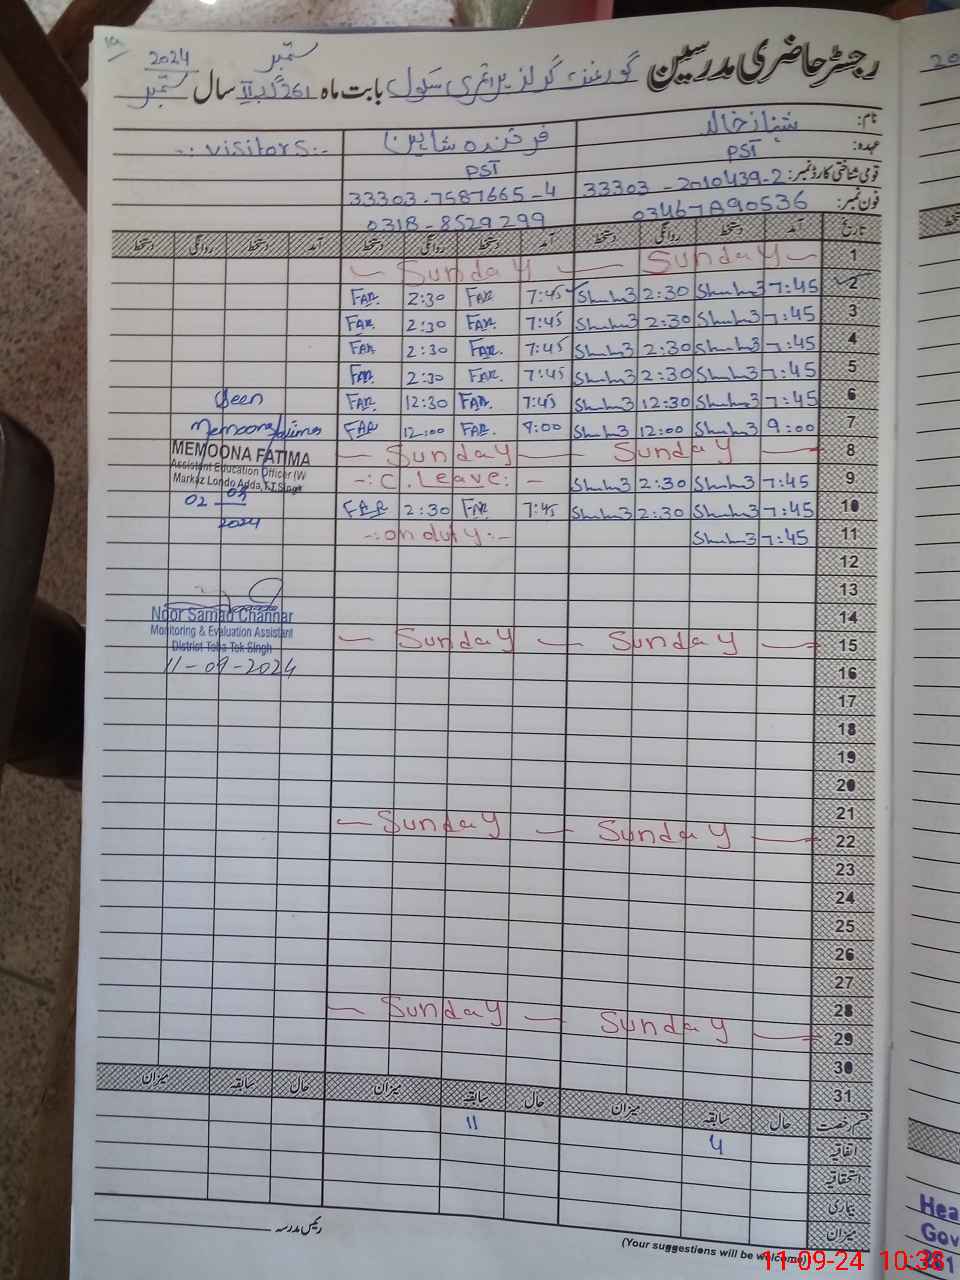 19
رجسٹر حاضری مدرسین گورنمنٹ گرلز پرائمری سکول بابت ماہ ستمبر 261 گ ب II سال ستمبر 2024
نام: شہناز خالد فرخندہ شاہین -: visitors:-
عہدہ: PST PST
قومی شناختی کارڈ نمبر: 33303-2010439-2 33303-7587665-4
فون نمبر: 03467A90536 0318-8529299
تاریخ آمد دستخط روانگی دستخط آمد دستخط روانگی دستخط آمد دستخط روانگی دستخط
1 Sunday Sunday
2 7:45 2:30 7:45 FAR 2:30 FAR
3 7:45 2:30 7:45 FAR. 2:30 FAR.
4 7:45 2:30 7:45 FAR. 2:30 FAR
5 7:45 2:30 7:45 FAR. 2:30 FAR.
6 7:45 12:30 7:45 FAR. 12:30 FAR. Seen
7 9:00 12:00 9:00 FAR. 12:00 FAR Memoona Fatima
8 Sunday Sunday
MEMOONA FATIMA
Assistant Education Officer (W)
Markaz Londo Adda, T.T.Singh
02 09 2024
9 7:45 2:30 -: C. Leave: -
10 7:45 2:30 7:45 FAR 2:30 FAR
11 7:45 -: on duty :-
12
13
14
Noor Samad Channar
Monitoring & Evaluation Assistant
District Toba Tek Singh
11-09-2024
15 Sunday Sunday
16
17
18
19
20
21
22 Sunday Sunday
23
24
25
26
27
28
29 Sunday Sunday
30
31
قسم رخصت حال سابقہ میزان حال سابقہ میزان حال سابقہ میزان
اتفاقیہ 4 11
استحقاقیہ
بیماری
میزان
رئیس مدرسہ
(Your suggestions will be welcome)
20
Hea
Gov
361
11-09-24 10:38